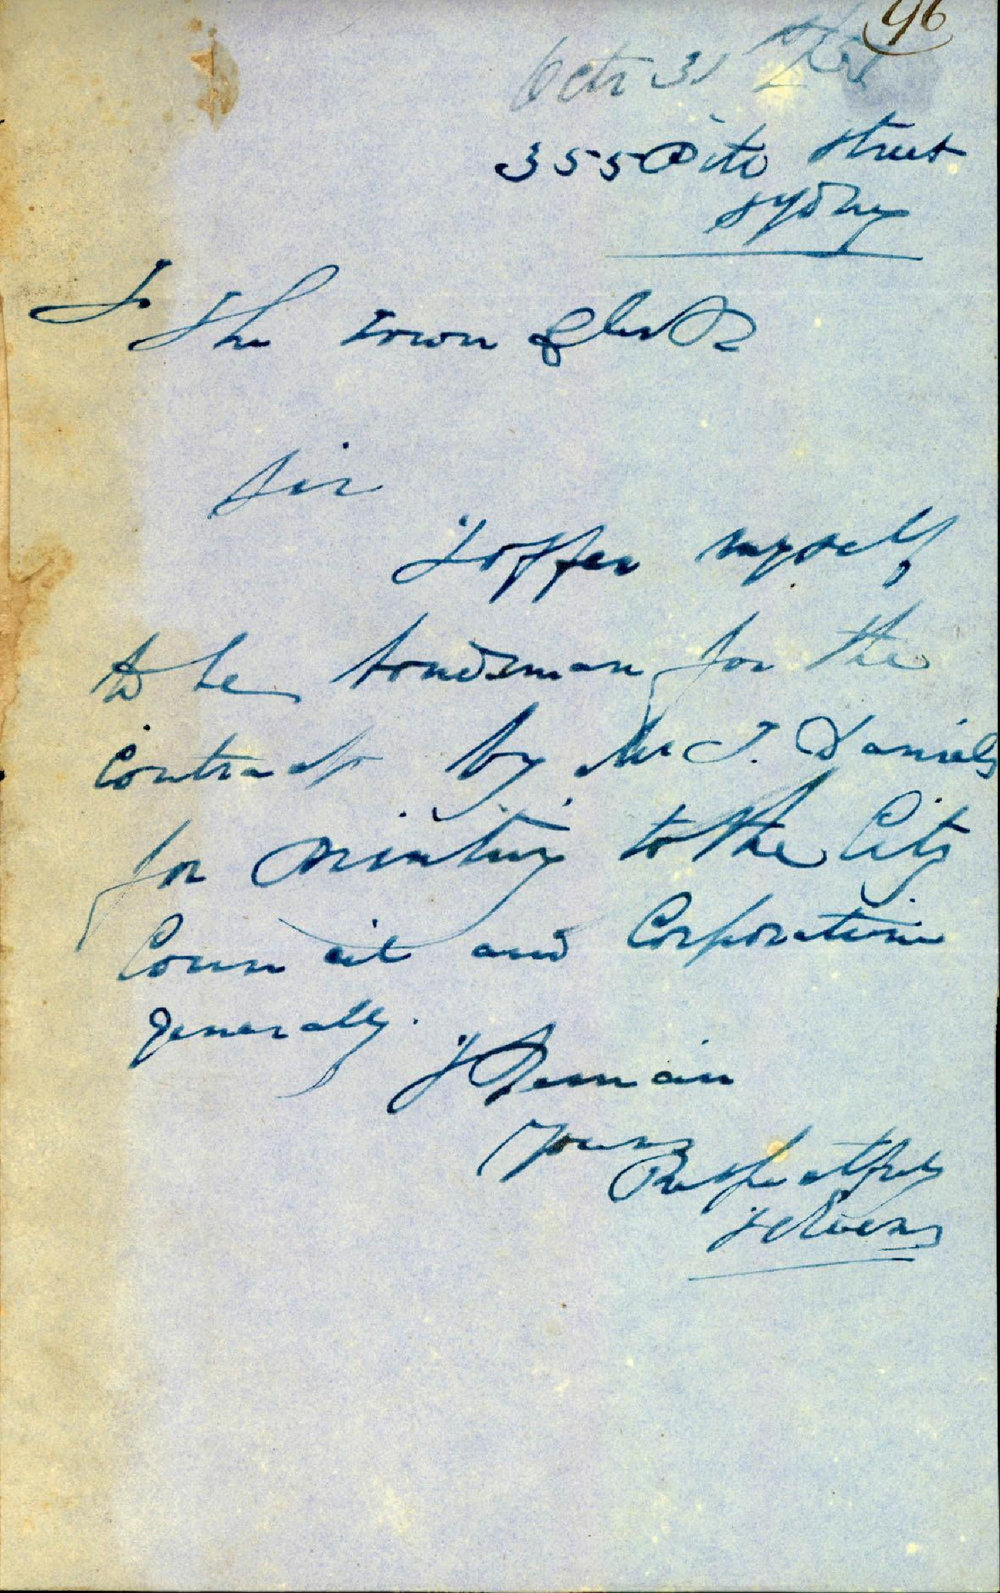 96
Octr 31st
355 Pitt Street
Sydney
To
The Town Clerk
Sir
I offer myself
to be bondsman for the
Contract by Mr J. Daniels
for Printing to the City
Council and Corporation
generally.
I Remain
Yours
Respectfuly